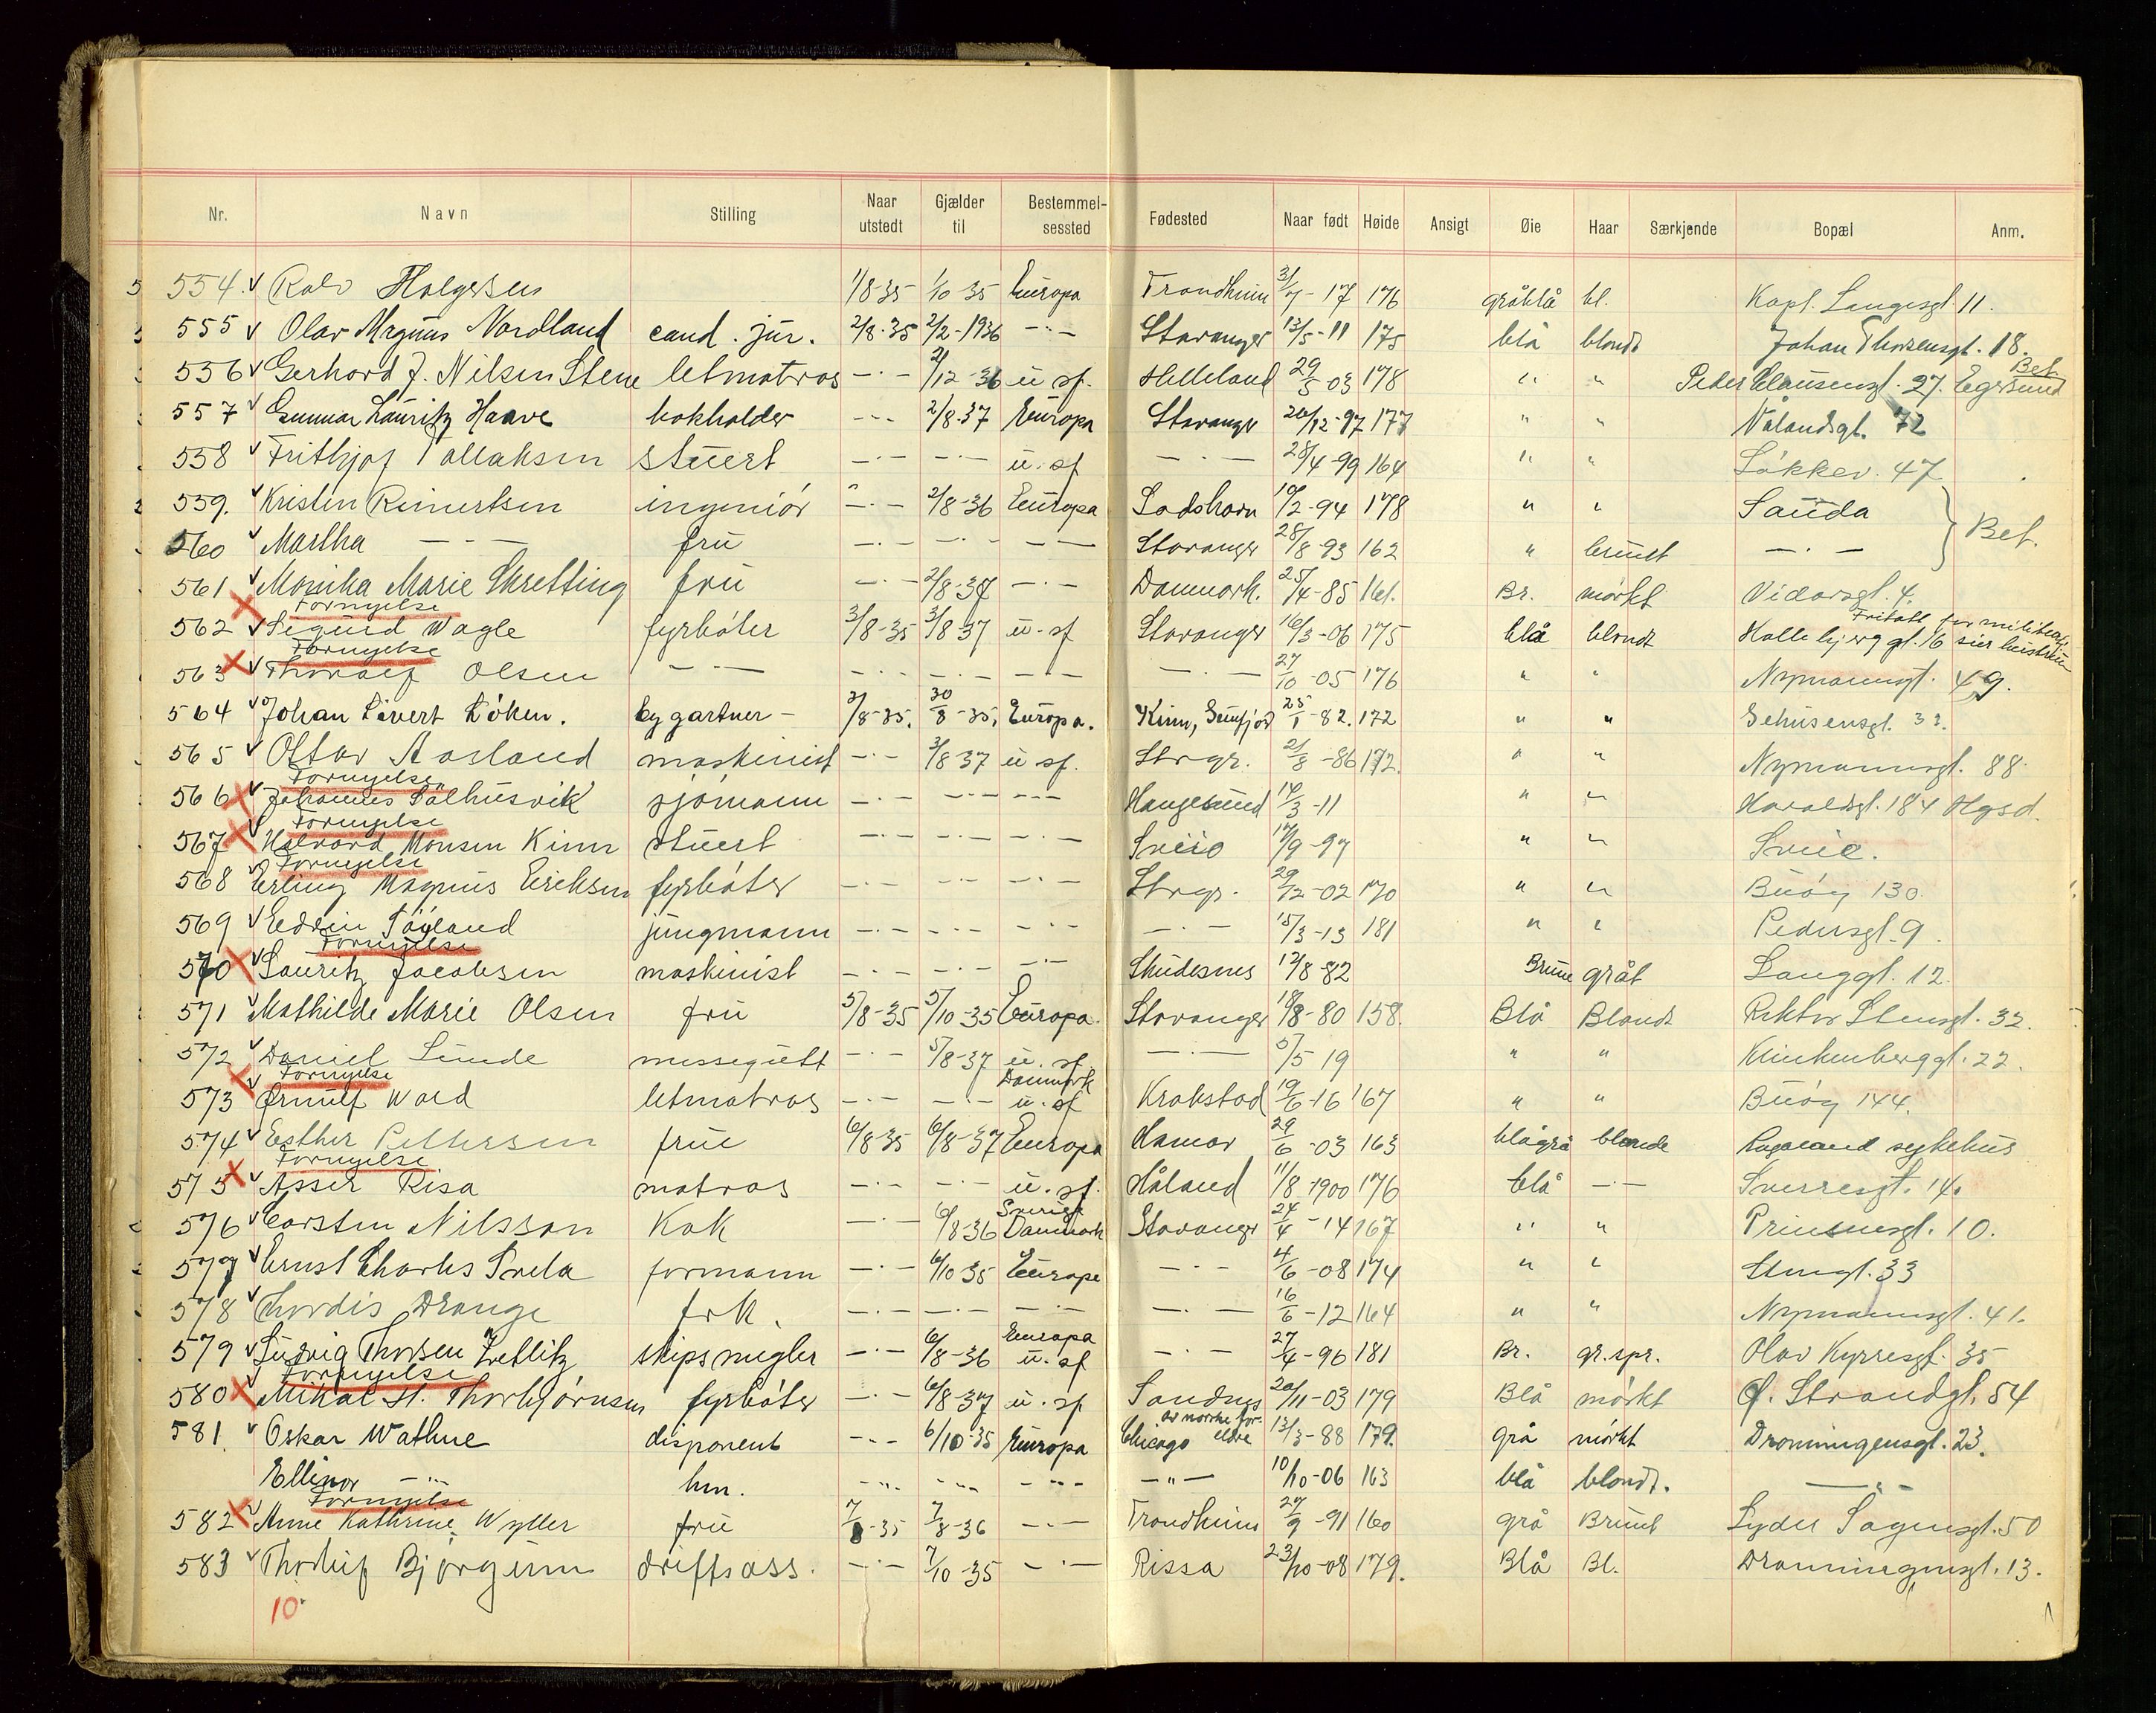 Nr. Navn Stilling Naar utstedt Gjælder til Bestemmel-sessted Fødested Naar født Høide Ansigt Øie Haar Særkjende Bopæl Anm.
554. Rolv Holgersen 1/8 35 1/10 35 Europa Trondheim 31/7-17 176 gråblå bl. Kapt. Langesgt 11.
555 Olav Magnus Nordland cand. jur. 2/8-35 2/2-1936 -"- Stavanger 13/5-11 175 blå blondt Johan Thorsensgt. 18.
556 Gerhard J. Nilsen Stene letmatros -"- 2/12-36 u sf. Helleland 29/5-03 178 " " Peder Clausensgt. 27. Egersund Bet.
557 Gunnar Lauritz Haave bokholder -"- 2/8-37 Europa Stavanger 26/12-97 177 " " Vålandsgt. 72
558 Frithjof Tollaksen stuert -"- -"- u. sf -"- 28/4-99 164 " " Løkkev. 47
559. Kristen Reinertsen ingeniør -"- 2/8-36 Europa 10/2-94 178 " " Sauda
560 Martha -"- fru -"- -"- -"- Stavanger 28/8-93 162 " brunt -"- Bet.
561 Monika Marie Skretting fru -"- 2/8-37 -"- Danmark. 25/4-85 161. Br. mørkt Vidarsgt. 4.
Fornyelse
562 Sigurd Wagle fyrbøter 3/8-35 3/8 37 u. sf Stavanger 16/3-06 175 blå blondt gt. 16 Fritatt for
Fornyelse
563 Thoralf Olsen -"- -"- -"- -"- -"- 27/10-05 176 " " Nymannsgt. 49.
564 Johan Sivert Løken. bygartner - 3/8-35. 30/8-35. Europa. Kinn, Sunfjord 25/1-82. 172 " "
565 Ottar Aasland maskinist -"- 3/8 37 u sf. Stvgr. 21/8-86 172. " " Nymannsgt. 88
Fornyelse
566 Johannes sjømann -"- -"- -"- Haugesund 3-11 " " Haraldsgt. 184 Hgsd.
Fornyelse
567 Halvard Monsen Kinn stuert -"- -"- -"- Sveio 9-97 " " Sveio.
Fornyelse
568 Erling Magnus Eriksen fyrbøter -"- -"- -"- Stvgr. 29/12-02 170 " " Buøy 130
569 Edvin jungmann -"- -"- -"- -"- 15/3-13 181 " " Pedersgt. 9.
Fornyelse
570 Lauritz Jacobsen maskinist -"- -"- -"- Skudesnes 12/8-82 Brune gråt Langgt. 12.
571 Mathilde Marie Olsen fru 5/8-35 5/10-35 Europa. Stavanger 18/8-80 158. Blå Blondt Rektor Stensgt. 32.
572 Daniel Lunde messegutt -"- 5/8-37 u. sf. -"- 5/5 19 " " Klinkenberggt. 22.
Fornyelse
573 Ørnulf Wold letmatros -"- -"- Danmark u. sf Krokstad 19/6-16 167 " " Buøy 144.
574 Esther Pettersen frue 6/8-35 6/8-37 Europa Hamar 29/6-03 163 blågrå blonde Rogaland sykehus
Fornyelse
575 Asser Risa matros -"- -"- u. sf. Håland 11/8-1900 176 blå -"- Sverresgt. 14.
576 Carsten Nilsson Kok -"- 6/8 36 Sverige Danmark Stavanger 24/4-14 167 " " Prinsensgt. 10.
577 Ernst Charles Svela formann -"- 6/10 35 Europa -"- 4/6-08 174 " " Stengt. 33
578 Thordis Drange frk. -"- -"- -"- -"- 16/6-12 164 " " Nymannsgt. 41.
579 Ludvig Thorsen Zetlitz skipsmegler -"- 6/8-36 Europa u. sf -"- 27/4-96 181 Br. gr.spr. Olav Kyrresgt. 35
Fornyelse
580 Mikal St. Thorbjørnsen fyrbøter -"- 6/8-37 u. sf. Sandnes 20/11-03 179 Blå mørkt Ø. Strandgt. 54
581. Oskar Wathne disponent -"- 6/10-35 Europa Chicago av norske foreldre 13/3-88 179. grå mørkt Dronningensgt. 23.
Ellinor -"- hm. -"- -"- -"- -"- 10/10-06 163 blå blondt. -"-
Fornyelse
582 Anne Kathrine Wyller fru 7/8-35 7/8-36 -"- Trondheim 27/9-91 160 grå Brunt Lyder Sagensgt. 50
583 Thorleif Bjørgum driftsass. -"- 7/10-35 -"- Rissa 23/10-08 179. Blå Bl. Dronningensgt. 13.
10